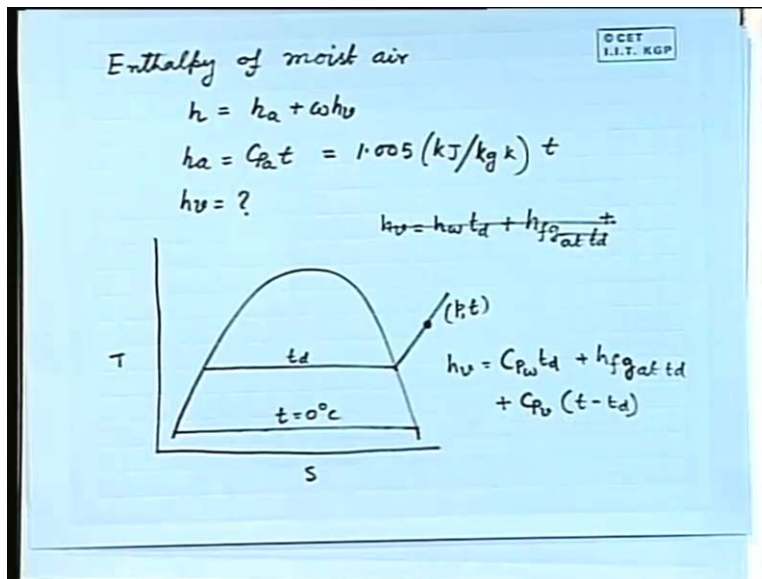 © CET
I.I.T. KGP
Enthalpy of moist air
h = ha + ωhv
ha = Cpat = 1.005 (kJ/kg k) t
hv = ?
hv = hw td + hfg at td +
(p,t)
T
td
hv = Cpw td + hfg at td
+ Cpv (t - td)
t = 0°c
S